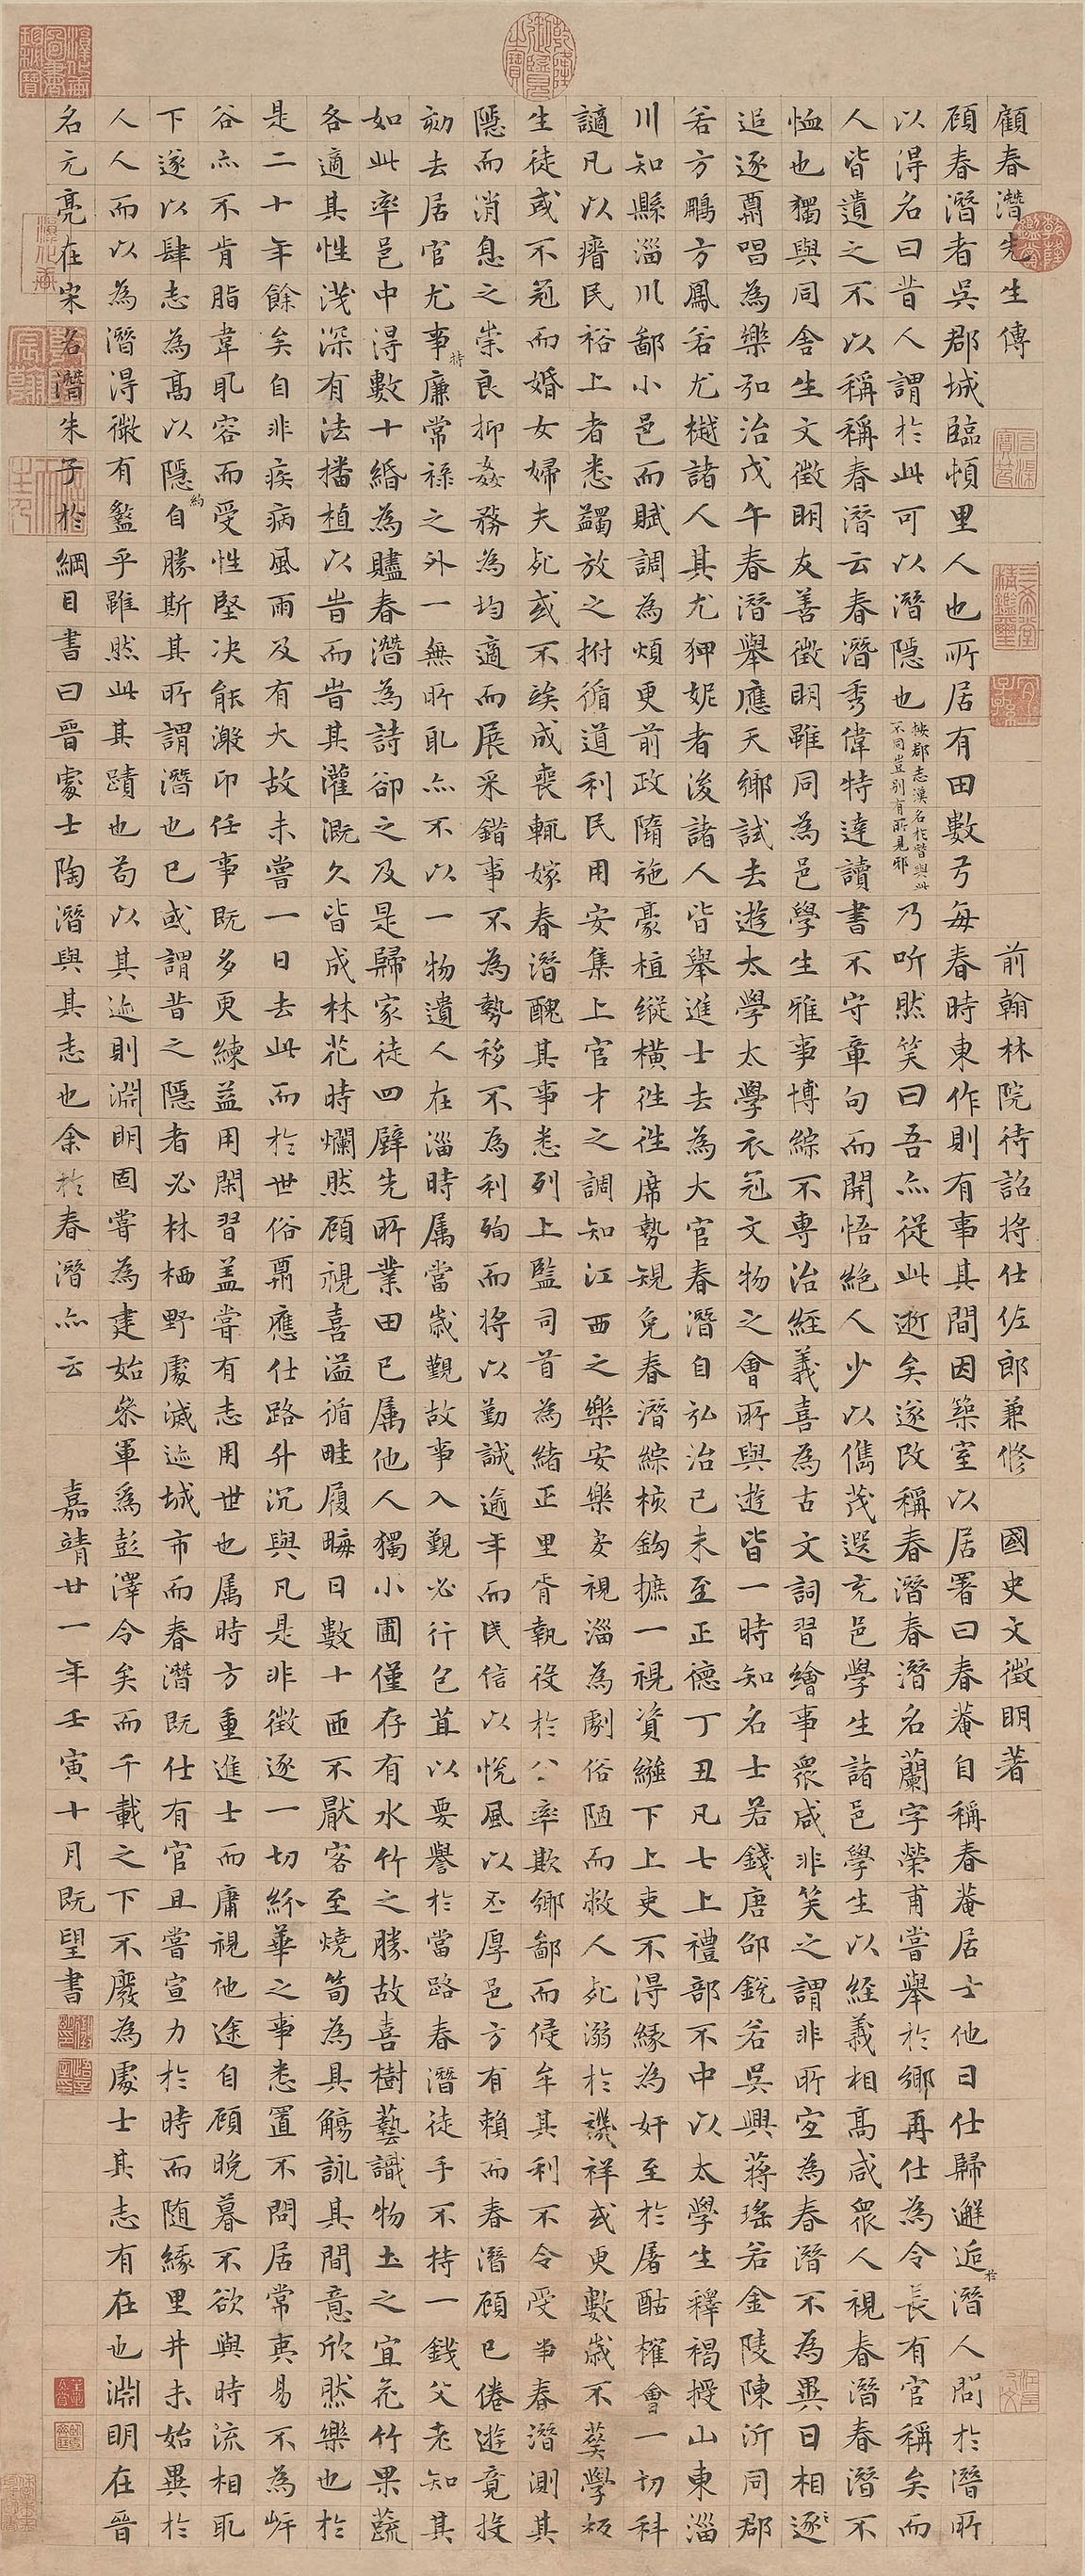 顧春潛先生傳 前翰林院待詔將仕佐郎兼修 國史文徵明著
顧春潛者吳郡城臨頓里人也所居有田數弓每春時東作則有事其間因築室以居署曰春菴自稱春菴居士他日仕歸邂逅於潛人問於潛所
以得名曰昔人謂於此可以潛隱也按郡志漢名於朁與此不同豈別有所見邪乃听然笑曰吾亦從此逝矣遂改稱春潛春潛名蘭字榮甫嘗舉於鄉再仕為令長有官稱矣而
人皆遺之不以稱稱春潛云春潛秀偉特達讀書不守章句而開悟絕人少以儁茂選充邑學生諸邑學生以經義相高咸眾人視春潛春潛不
恤也獨與同舍生文徵明友善徵明雖同為邑學生雅事博綜不專治經義喜為古文詞習繪事眾咸非笑之謂非所宜為春潛不為異日相逐
追逐鬻唱為樂弘治戊午春潛舉應天鄉試去遊太學太學衣冠文物之會所與遊皆一時知名士若錢唐邵銳若吳興蔣瑤若金陵陳沂同郡
若方鵬方鳳若尤樾諸人其尤狎妮者後諸人皆舉進士去為大官春潛自弘治己未至正德丁丑凡七上禮部不中以太學生釋褐授山東淄
川知縣淄川鄙小邑而賦調為煩更前政隋施豪植縱橫往往席勢規免春潛綜核鈎摭一視資繦下上吏不得緣為奸至於屠酤榷會一切科
讁凡以瘠民裕上者悉蠲放之拊循道利民用安集上官才之調知江西之樂安樂安視淄為劇俗陋而敝人死溺於禨祥或更數歲不葬學校
生徒或不冠而婚女婦夫死或不竢成喪輒嫁春潛醜其事悉列上監司首為緒正里胥執役於公率欺鄉鄙而侵牟其利不令受事春潛測其
隱而消息之崇良抑姦務為均適而展采錯事不為勢移不為利殉而將以勤誠逾年而民信以悅風以丕厚邑方有賴而春潛顧已倦遊竟投
劾去居官尤事持廉常祿之外一無所取亦不以一物遺人在淄時屬當歲覲故事入覲必行包苴以要譽於當路春潛徒手不持一錢父老知其
如此率邑中得數十緡為贐春潛為詩卻之及是歸家徒四壁先所業田已屬他人獨小圃僅存有水竹之勝故喜樹藝識物土之宜花竹果蓏
各適其性淺深有法播植以時而時其灌溉久皆成林花時爛然顧視喜溢循畦履畮日數十匝不厭客至燒筍為具觴詠其間意欣然樂也於
是二十年餘矣自非疾病風雨及有大故未嘗一日去此而於世俗鬻應仕路升沉與凡是非徵逐一切紛華之事悉置不問居常夷易不為岸
谷亦不肯脂韋取容而受性堅決能激卬任事既多更練益用閑習盖嘗有志用世也属時方重進士而庸視他途自顧晚暮不欲與時流相取
下遂以肆志為高以隱自約勝斯其所謂潛也已或謂昔之隱者必林栖野處滅迹城市而春潛既仕有官且嘗宣力於時而随緣里井未始異於
人人而以為潛得微有盭乎雖然此其蹟也苟以其迹則淵明固嘗為建始參軍為彭澤令矣而千載之下不廢為處士其志有在也淵明在晉
名元亮在宋名潛朱子於綱目書曰晉處士陶潛與其志也余於春潛亦云 嘉靖廿一年壬寅十月既望書